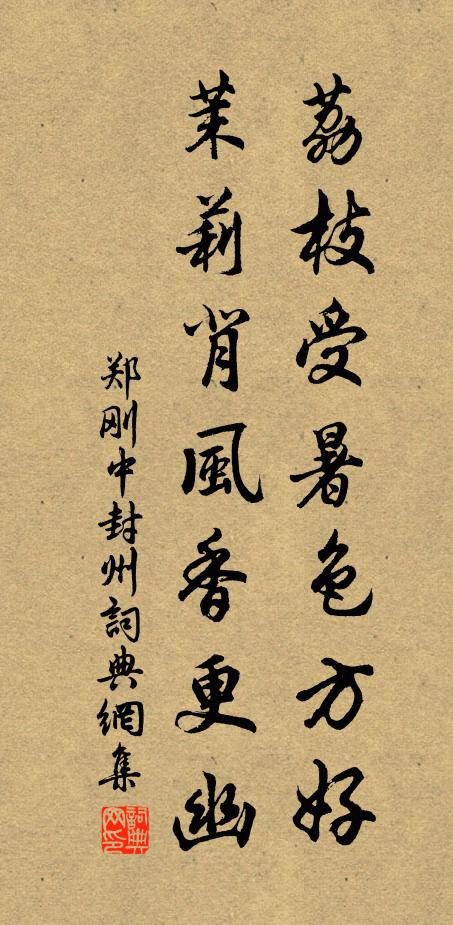 荔枝受暑色方好
茉莉背風香更幽
郑刚中封州詞典網集
詞典网印